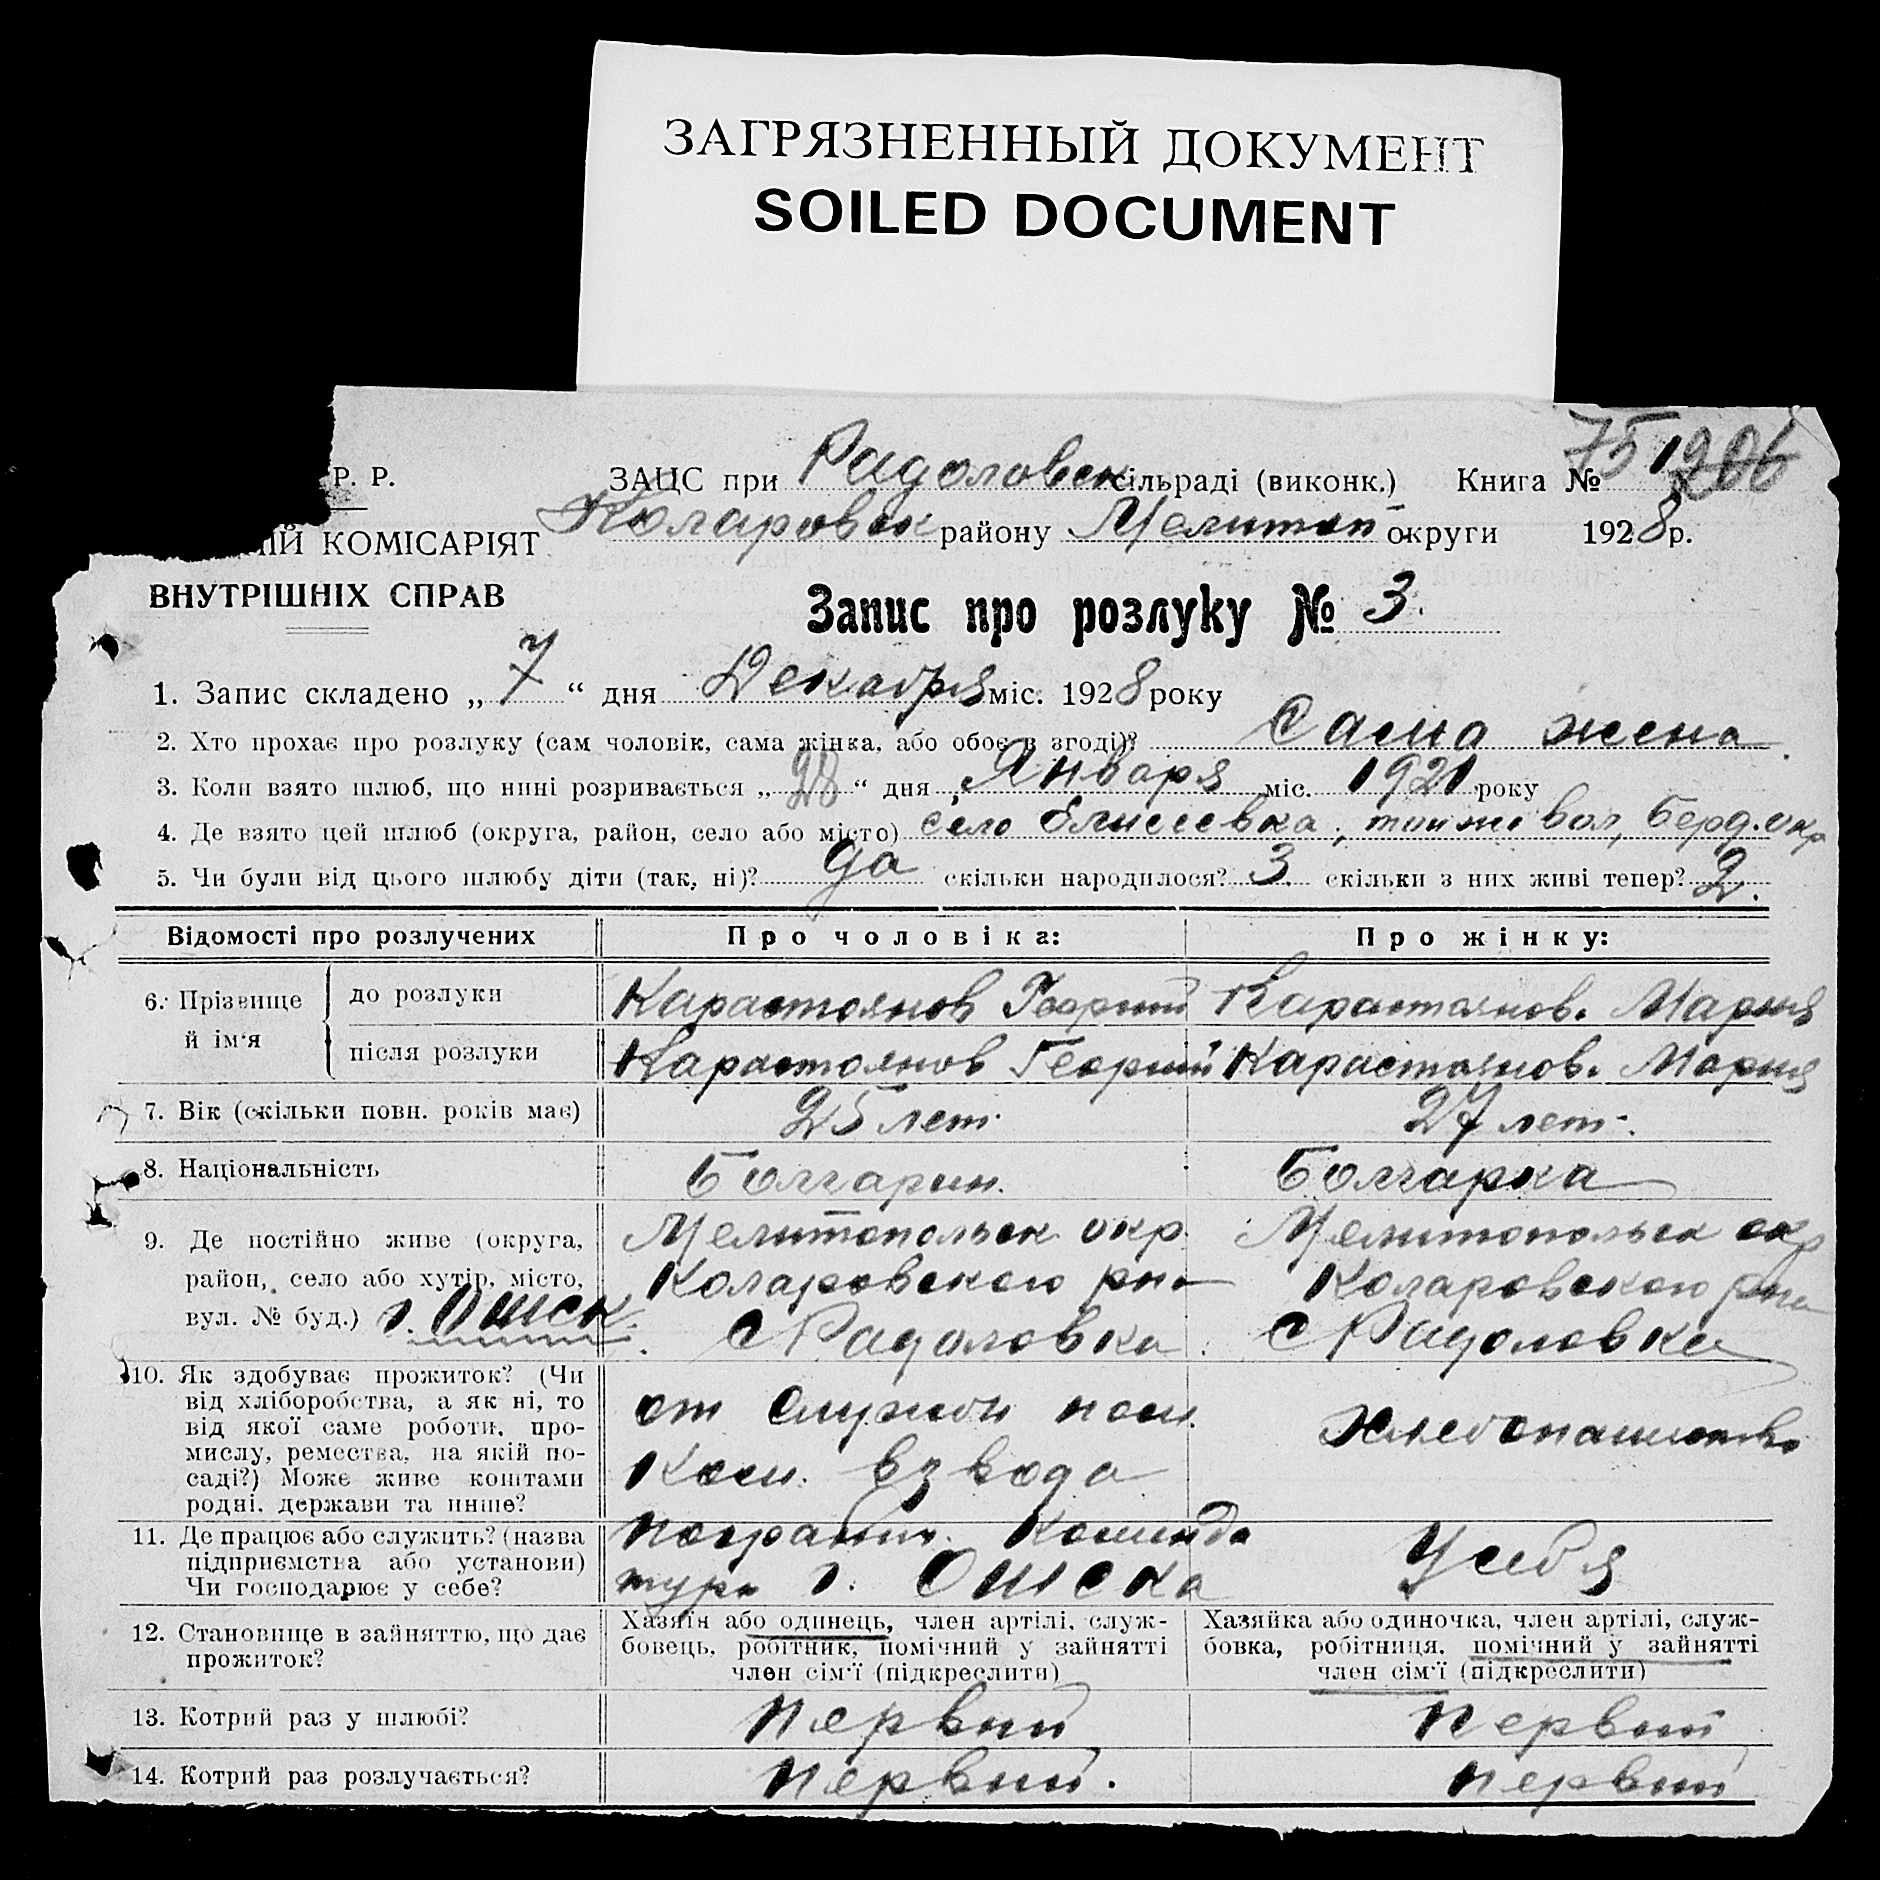 ЗАГРЯЗНЕННЫЙ ДОКУМЕНТ
SOILED DOCUMENT
75
Р. Р.
ЗАЦС при Радоловск сільраді (виконк.) Книга №
Коларовск району Мелитоп округи 1928 р.
ИЙ КОМІСАРІЯТ
ВНУТРІШНІХ СПРАВ
Запис про розлуку № 3.
1. Запис складено „ 7 “ дня Декабря міс. 1928 року
2. Хто прохає про розлуку (сам чоловік, сама жінка, або обоє в згоді)? Сама жена
3. Коли взято шлюб, що нині розривається „ 28 “ дня Января міс. 1921 року
4. Де взято цей шлюб (округа, район, село або місто) село Елисеевка, той же вол, Берд. окр
5. Чи були від цього шлюбу діти (так, ні)? да скільки народилося? 3 скільки з них живі тепер? 2.
Відомості про розлучених
Про чоловіка:
Про жінку:
6. Прізвище й ім'я
до розлуки
Карастоянов Георгий
Карастоянов. Мария
після розлуки
Карастоянов Георгий
Карастоянов. Мария
7. Вік (скільки повн. років має)
25 лет.
27 лет.
8. Національність
Болгарин.
Болгарка
9. Де постійно живе (округа,
район, село або хутір, місто,
вул. № буд.) г. Минск.
Мелитопольск окр.
Коларовского рна
с Радоловка
Мелитопольск окр
Коларовского рна
с Радоловка
10. Як здобуває прожиток? (Чи
від хліборобства, а як ні, то
від якої саме роботи, про-
мислу, ремества, на якій по-
саді?) Може живе коштами
родні, держави та инше?
от службы пом.
Ком. взвода
Хлебопашество
11. Де працює або служить? (назва
підприємства або установи)
Чи господарює у себе?
Погранич. Коменда
тура г.
У себя
12. Становище в зайняттю, що дає
прожиток?
Хазяїн або одинець, член артілі, служ-
бовець, робітник, помічний у зайнятті
член сім'ї (підкреслити)
Хазяйка або одиночка, член артілі, служ-
бовка, робітниця, помічний у зайнятті
член сім'ї (підкреслити)
13. Котрий раз у шлюбі?
Первый
Первый
14. Котрий раз розлучається?
Первый.
Первый